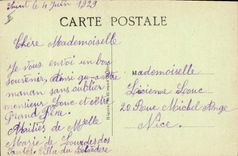 le 4 Juin 1929
CARTE POSTALE
Chère Mademoiselle
Je vous envoi un bon
souvenir ainsi qu'a votre
maman sans oublier
monsieur Louc et votre
Grand Père.
Amitiés de Melle
Marie de Lourdes des
Mademoiselle
Louc
20 Rue Michel Ange
Nice.